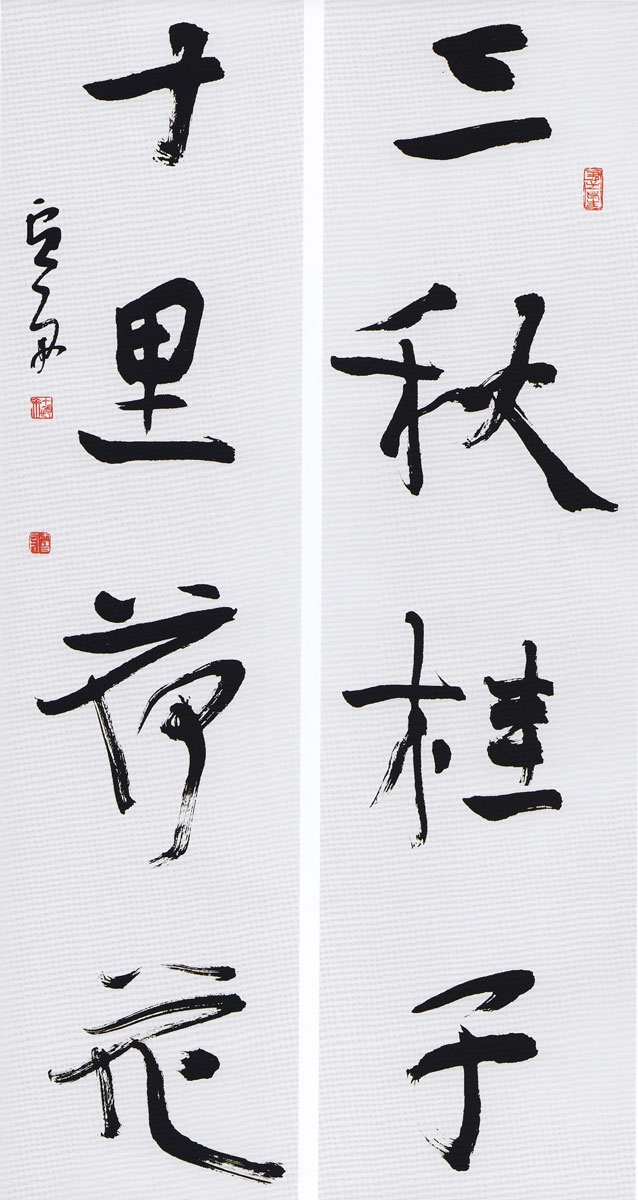 三秋桂子
十里荷花